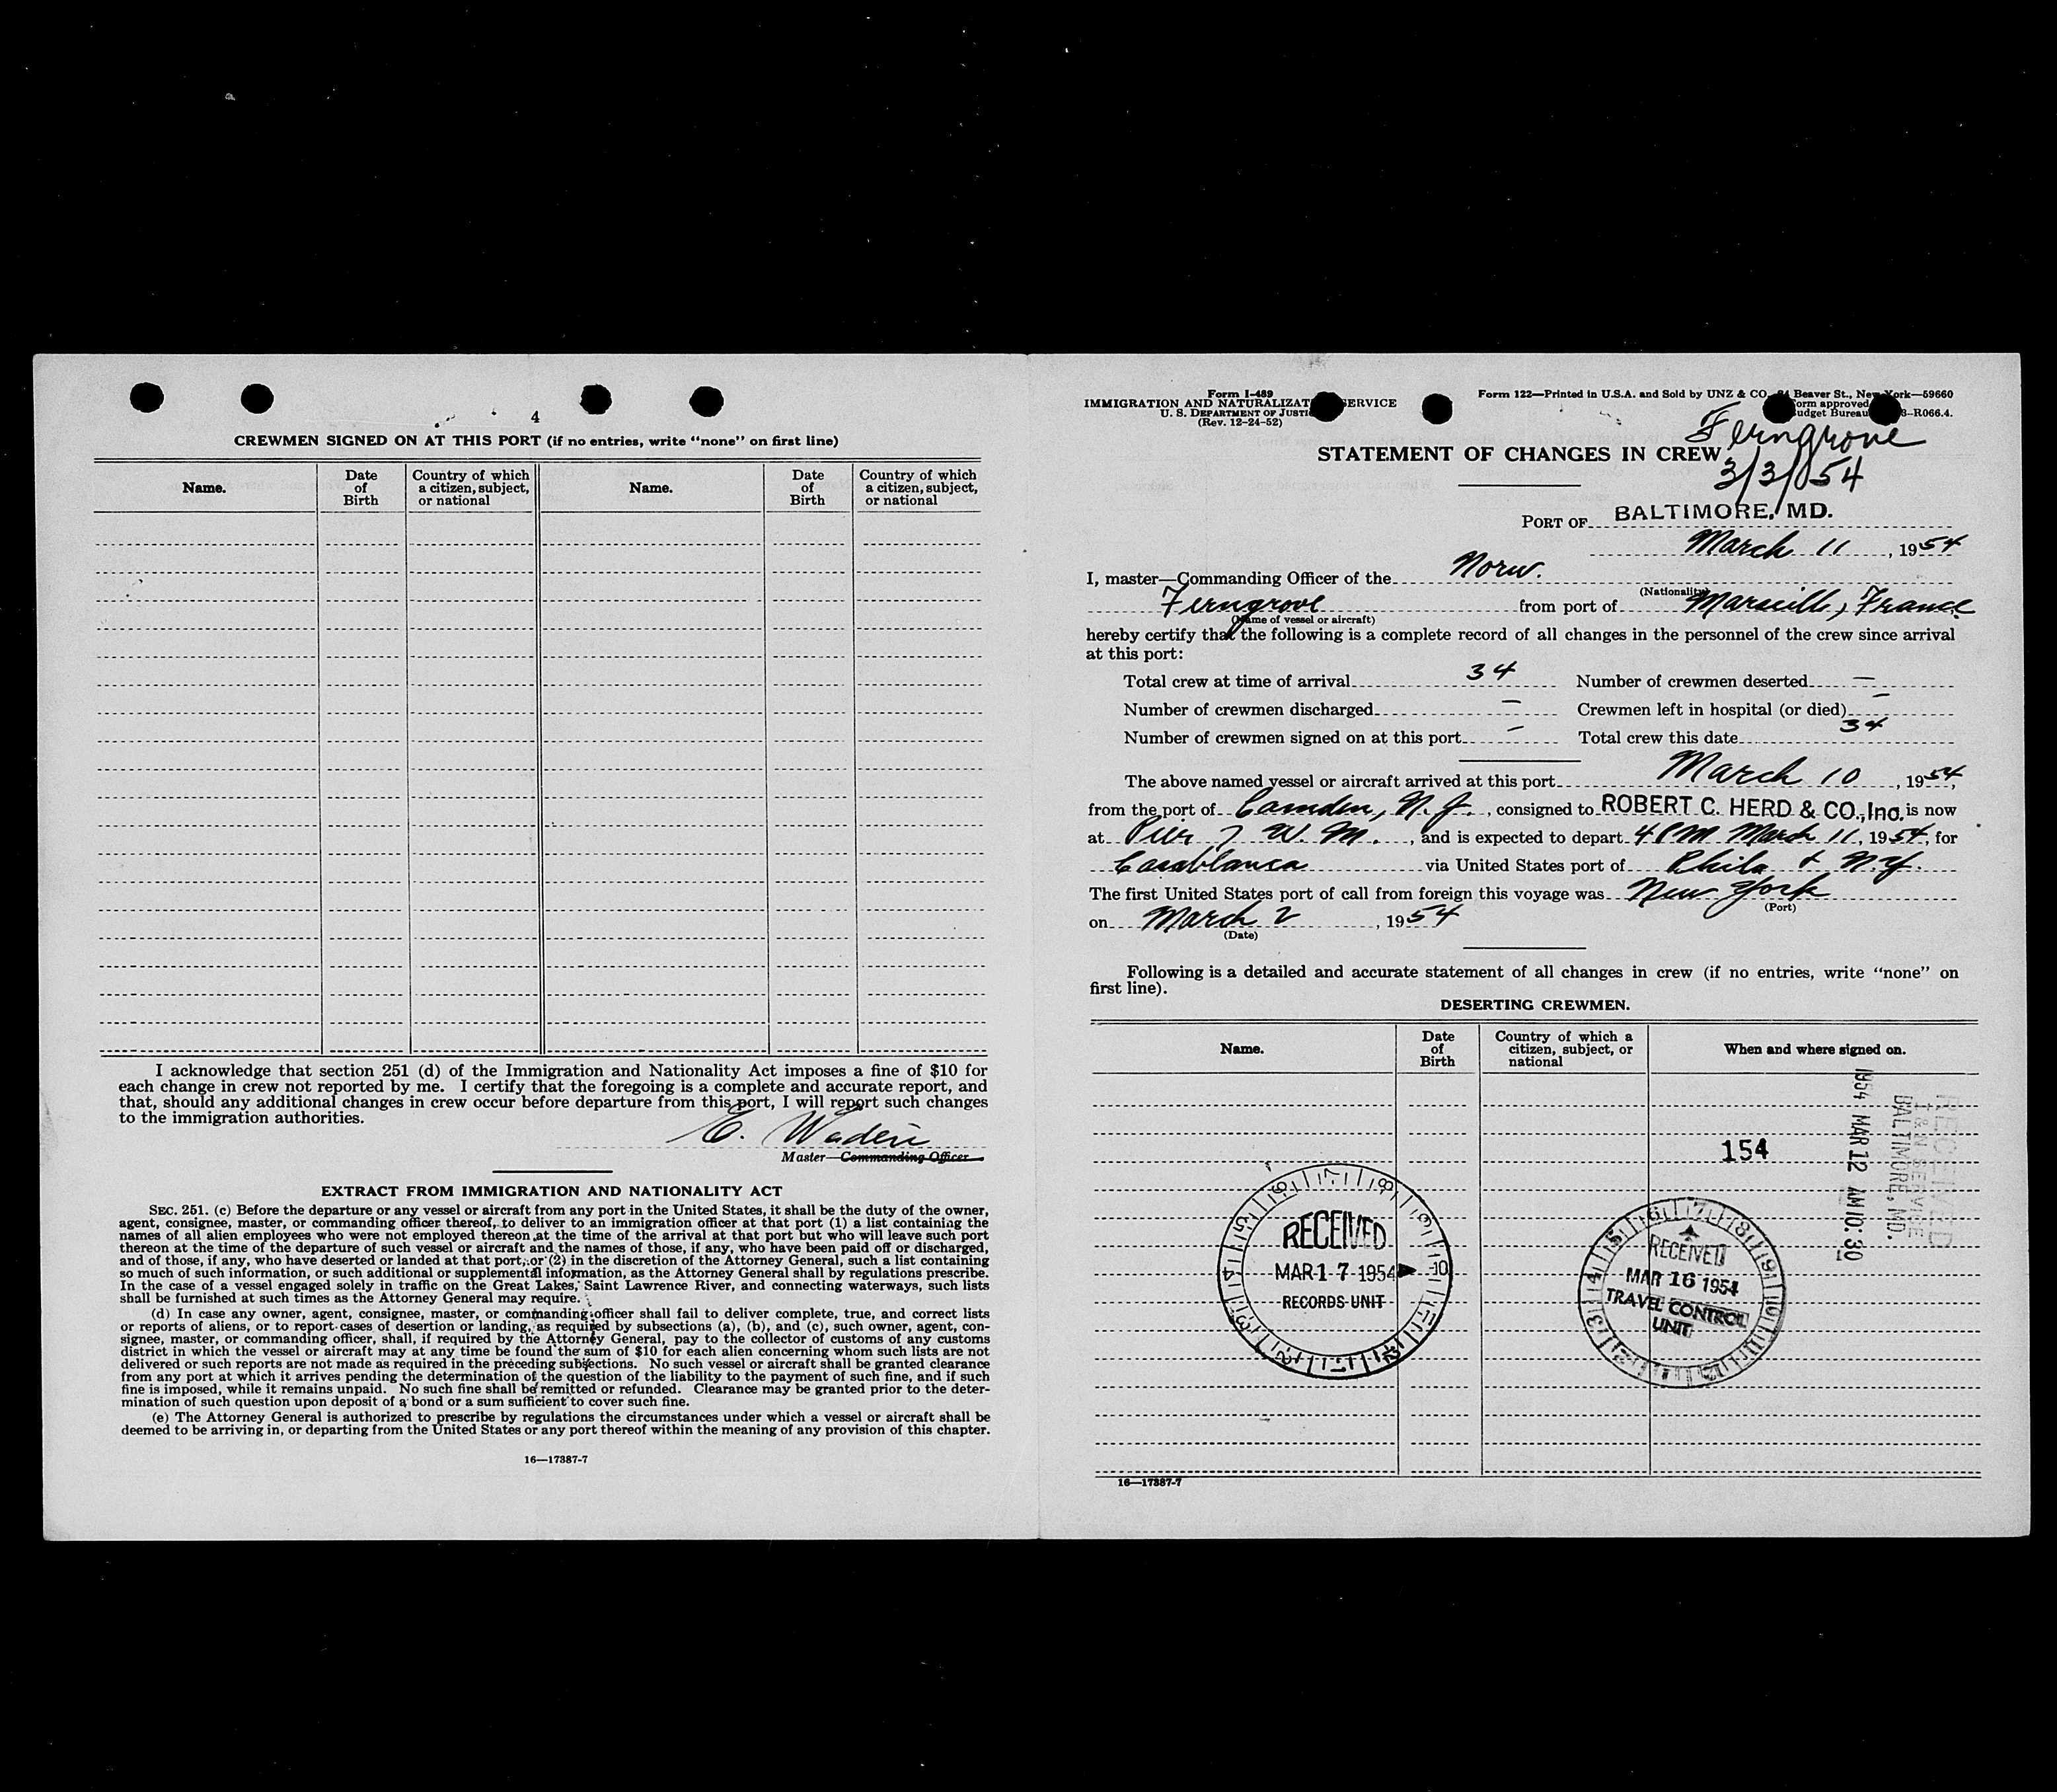 4
CREWMEN SIGNED ON AT THIS PORT (if no entries, write “none” on first line)
Name. Date of Birth Country of which a citizen, subject, or national Name. Date of Birth Country of which a citizen, subject, or national
I acknowledge that section 251 (d) of the Immigration and Nationality Act imposes a fine of $10 for
each change in crew not reported by me. I certify that the foregoing is a complete and accurate report, and
that, should any additional changes in crew occur before departure from this port, I will report such changes
to the immigration authorities.
Master—Commanding Officer
EXTRACT FROM IMMIGRATION AND NATIONALITY ACT
SEC. 251. (c) Before the departure or any vessel or aircraft from any port in the United States, it shall be the duty of the owner,
agent, consignee, master, or commanding officer thereof, to deliver to an immigration officer at that port (1) a list containing the
names of all alien employees who were not employed thereon at the time of the arrival at that port but who will leave such port
thereon at the time of the departure of such vessel or aircraft and the names of those, if any, who have been paid off or discharged,
and of those, if any, who have deserted or landed at that port, or (2) in the discretion of the Attorney General, such a list containing
so much of such information, or such additional or supplemental information, as the Attorney General shall by regulations prescribe.
In the case of a vessel engaged solely in traffic on the Great Lakes, Saint Lawrence River, and connecting waterways, such lists
shall be furnished at such times as the Attorney General may require.
(d) In case any owner, agent, consignee, master, or commanding officer shall fail to deliver complete, true, and correct lists
or reports of aliens, or to report cases of desertion or landing, as required by subsections (a), (b), and (c), such owner, agent, con-
signee, master, or commanding officer, shall, if required by the Attorney General, pay to the collector of customs of any customs
district in which the vessel or aircraft may at any time be found the sum of $10 for each alien concerning whom such lists are not
delivered or such reports are not made as required in the preceding subsections. No such vessel or aircraft shall be granted clearance
from any port at which it arrives pending the determination of the question of the liability to the payment of such fine, and if such
fine is imposed, while it remains unpaid. No such fine shall be remitted or refunded. Clearance may be granted prior to the deter-
mination of such question upon deposit of a bond or a sum sufficient to cover such fine.
(e) The Attorney General is authorized to prescribe by regulations the circumstances under which a vessel or aircraft shall be
deemed to be arriving in, or departing from the United States or any port thereof within the meaning of any provision of this chapter.
16—17387-7
Form I-489
IMMIGRATION AND NATURALIZAT SERVICE
U. S. DEPARTMENT OF JUSTI
(Rev. 12-24-52)
Form 122—Printed in U.S.A. and Sold by UNZ & CO. 24 Beaver St., New York—59660
Form approved
Budget Bureau 3-R066.4.
Ferngrove
STATEMENT OF CHANGES IN CREW
3/3/54
PORT OF BALTIMORE, MD.
March 11, 1954
I, master—Commanding Officer of the Norw.
(Nationality)
Ferngrove from port of Marseille, France
(Name of vessel or aircraft)
hereby certify that the following is a complete record of all changes in the personnel of the crew since arrival
at this port:
Total crew at time of arrival 34 Number of crewmen deserted —
Number of crewmen discharged — Crewmen left in hospital (or died) —
Number of crewmen signed on at this port — Total crew this date 34
The above named vessel or aircraft arrived at this port March 10, 1954,
from the port of Camden, N.J., consigned to ROBERT C. HERD & CO., Inc. is now
at Pier 7 W. M., and is expected to depart 4 PM March 11, 1954, for
Casablanca via United States port of Phila & N.Y.
The first United States port of call from foreign this voyage was New York
(Port)
on March 2, 1954
(Date)
Following is a detailed and accurate statement of all changes in crew (if no entries, write “none” on
first line).
DESERTING CREWMEN.
Name. Date of Birth Country of which a citizen, subject, or national When and where signed on.
RECEIVED
I & N SERVICE
BALTIMORE, MD.
1954 MAR 12 AM 10:30
154
RECEIVED
MAR 17 1954
RECORDS UNIT
RECEIVED
MAR 16 1954
TRAVEL CONTROL
UNIT
16—17387-7